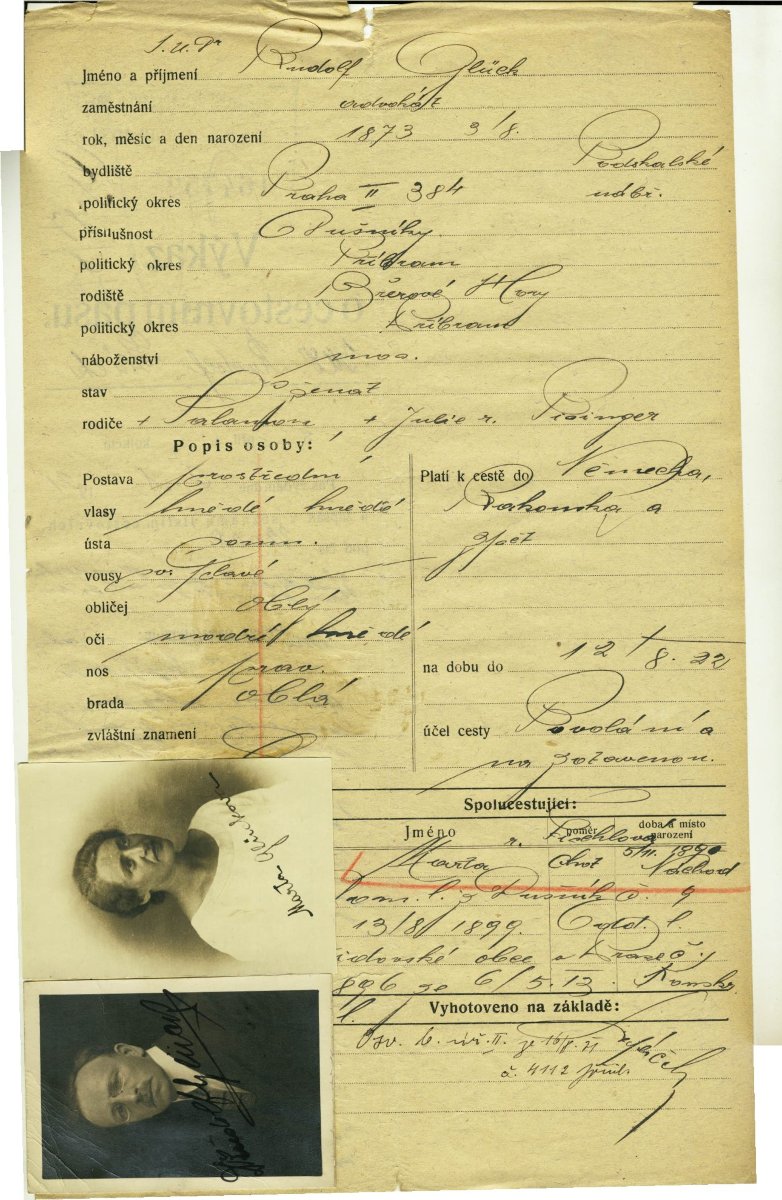 J.U.Dr
Jméno a příjmení Rudolf Glück
zaměstnání advokát
rok, měsíc a den narození 1873 3/8.
bydliště Podskalské
politický okres Praha II 384 nábř.
příslušnost Dušníky.
politický okres Příbram
rodiště Březové Hory
politický okres Příbram
náboženství mos.
stav ženat
rodiče + Salamon + Julie r. Pisinger
Popis osoby:
Postava prostřední
vlasy hnědé hnědé
ústa norm.
vousy plavé
obličej oblý
oči modré hnědé
nos prav.
brada oblá
zvláštní znamení
Platí k cestě do Německa,
Rakouska a
zpět
na dobu do 12/8. 22
účel cesty Povolání a
na zotavenou.
Spolucestující:
Jméno poměr doba a místo narození
r. 5/11. 1890
Marta choť Náchod
Dom. l. z Dušník č. 9
13/8 1899. Odd. l.
židovské obce v Praze č.
896 ze 6/5.13.
Vyhotoveno na základě:
Osv. b. úř. II. ze 16/8. 21
č. 4112
Marta Glücková